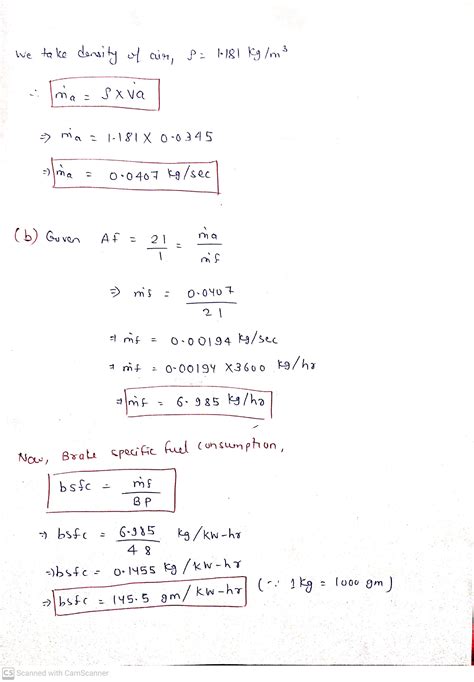 We take density of air, ρ = 1.181 kg/m³
∴ ṁa = ρ x v̇a
⇒ ṁa = 1.181 X 0.0345
⇒ ṁa = 0.0407 kg/sec
(b) Given AF = 21/1 = ṁa/ṁf
⇒ ṁf = 0.0407/21
⇒ ṁf = 0.00194 kg/sec
⇒ ṁf = 0.00194 X3600 kg/hr
⇒ ṁf = 6.985 kg/hr
Now, Brake specific fuel consumption,
bsfc = ṁf/BP
⇒ bsfc = 6.985/48 kg/kw-hr
⇒ bsfc = 0.1455 kg/kw-hr
⇒ bsfc = 145.5 gm/kw-hr (∵ 1kg = 1000 gm)
CS Scanned with CamScanner